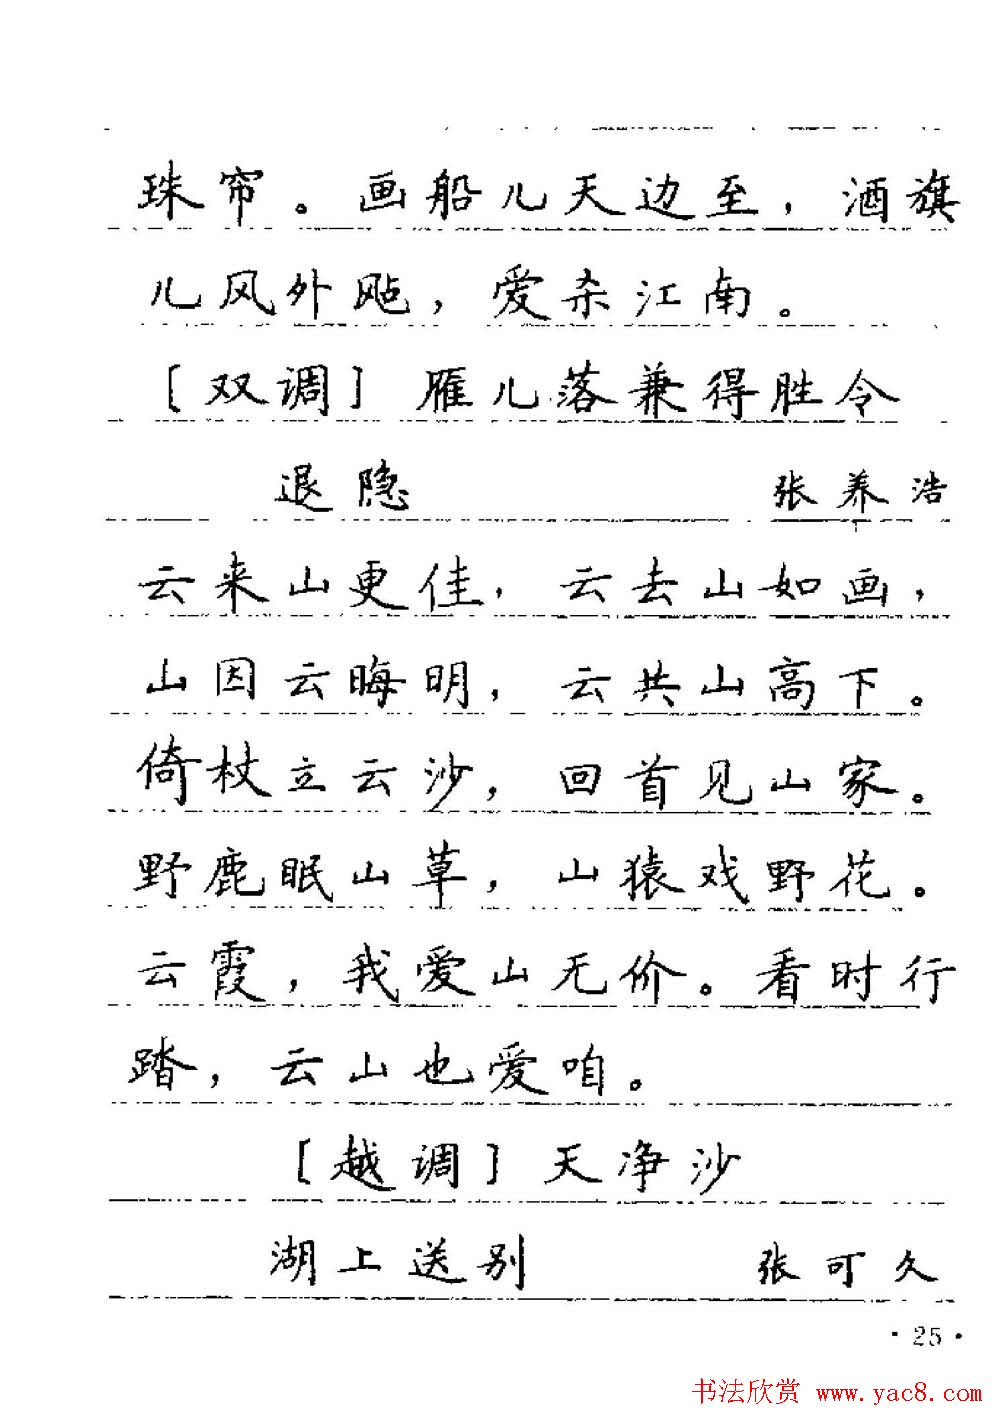 珠帘。画船儿天边至，酒旗
儿风外飐，爱杀江南。
［双调］雁儿落兼得胜令
退隐 张养浩
云来山更佳，云去山如画，
山因云晦明，云共山高下。
倚杖立云沙，回首见山家。
野鹿眠山草，山猿戏野花。
云霞，我爱山无价。看时行
踏，云山也爱咱。
［越调］天净沙
湖上送别 张可久
·25·
书法欣赏 www.yac8.com